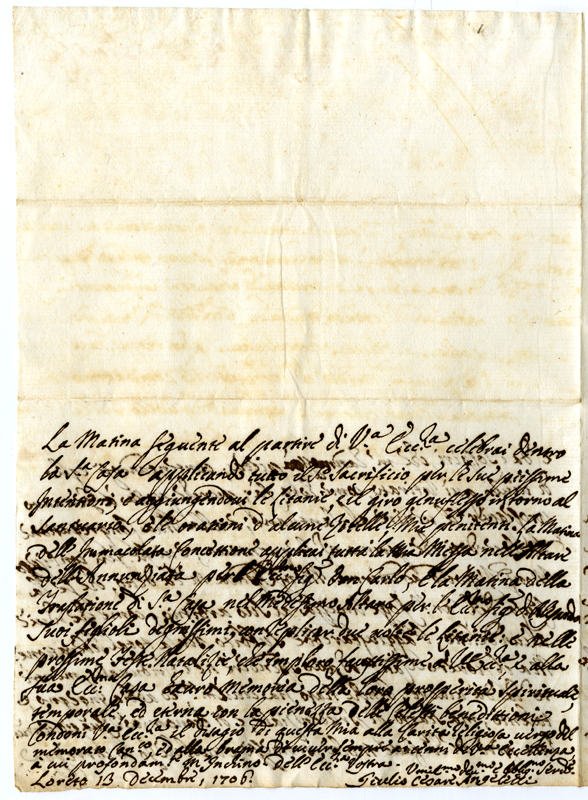 La Matina seguente al partire di V.a Ecc.za celebrai dentro
la S.ta Casa applicando tutto il S.to Sacrificio per le sue piissime
Intentioni, e aggiungendovi le litanie, e il giro genuflesso intorno al
Santuario, e le orationi d'alcune penitenti. La Matina
dell'Immacolata Concettione applicai tutta la mia Messa nell'Altare
della Annunziata per l'Ecc. Sig. Don Carlo, e la Matina della
Traslatione di S.ta Casa nel medesimo Altare per l'Ecc. Sig.
suoi figlioli degnissimi, con replicar due volte le litanie. e nelle
prossime feste Natalitie, che imploro faustissime a V. Ecc.za e alla
sua Ecc.ma Casa farò Memoria della loro prosperità spirituale,
temporale, ed eterna con la pienezza delle Celesti benedittioni.
Condoni V.a Ecc.za il disagio di questa mia alla Carità religiosa verso del
memorato Can.co, ed alla brama di vivere sempre ai cenni di V.a Eccellenza
a cui profondam.te m'inchino Dell'Ecc.za Vostra
Loreto 13 Decembre, 1706. Umil.mo dev.mo e obblig.mo Serv.e
Giulio Cesare Angelelli